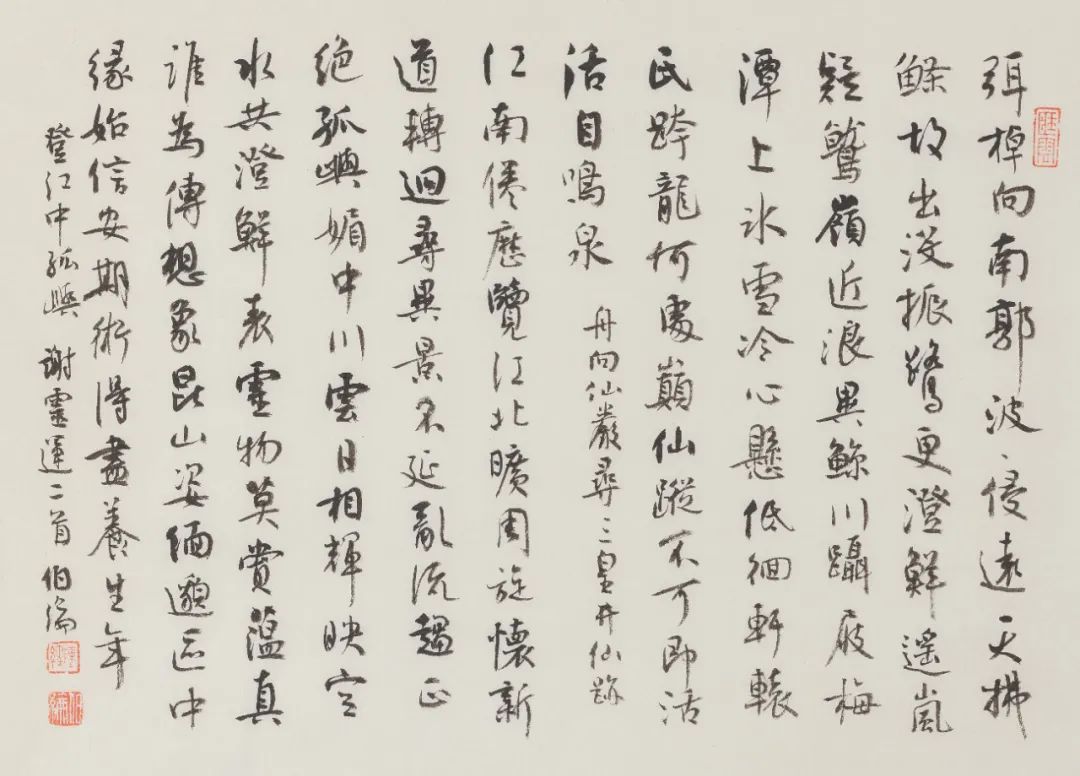 弭棹向南郭波々侵遠天拂
鯈故出没振鷺更澄鮮遥嵐
疑鷲嶺近浪異鯨川躡屐梅
潭上冰雪冷心懸低徊軒轅
氏跨龍何處巔仙蹤不可即活
活自鳴泉 舟向仙巖尋三皇井仙跡
江南倦歷覽江北曠周旋懷新
道轉迥尋異景不延亂流趨正
絕孤嶼媚中川雲日相輝映空
水共澄鮮表靈物莫賞蘊真
誰為傳想象昆山姿緬邈區中
緣始信安期術得盡養生年
登江中孤嶼 謝靈運二首 伯